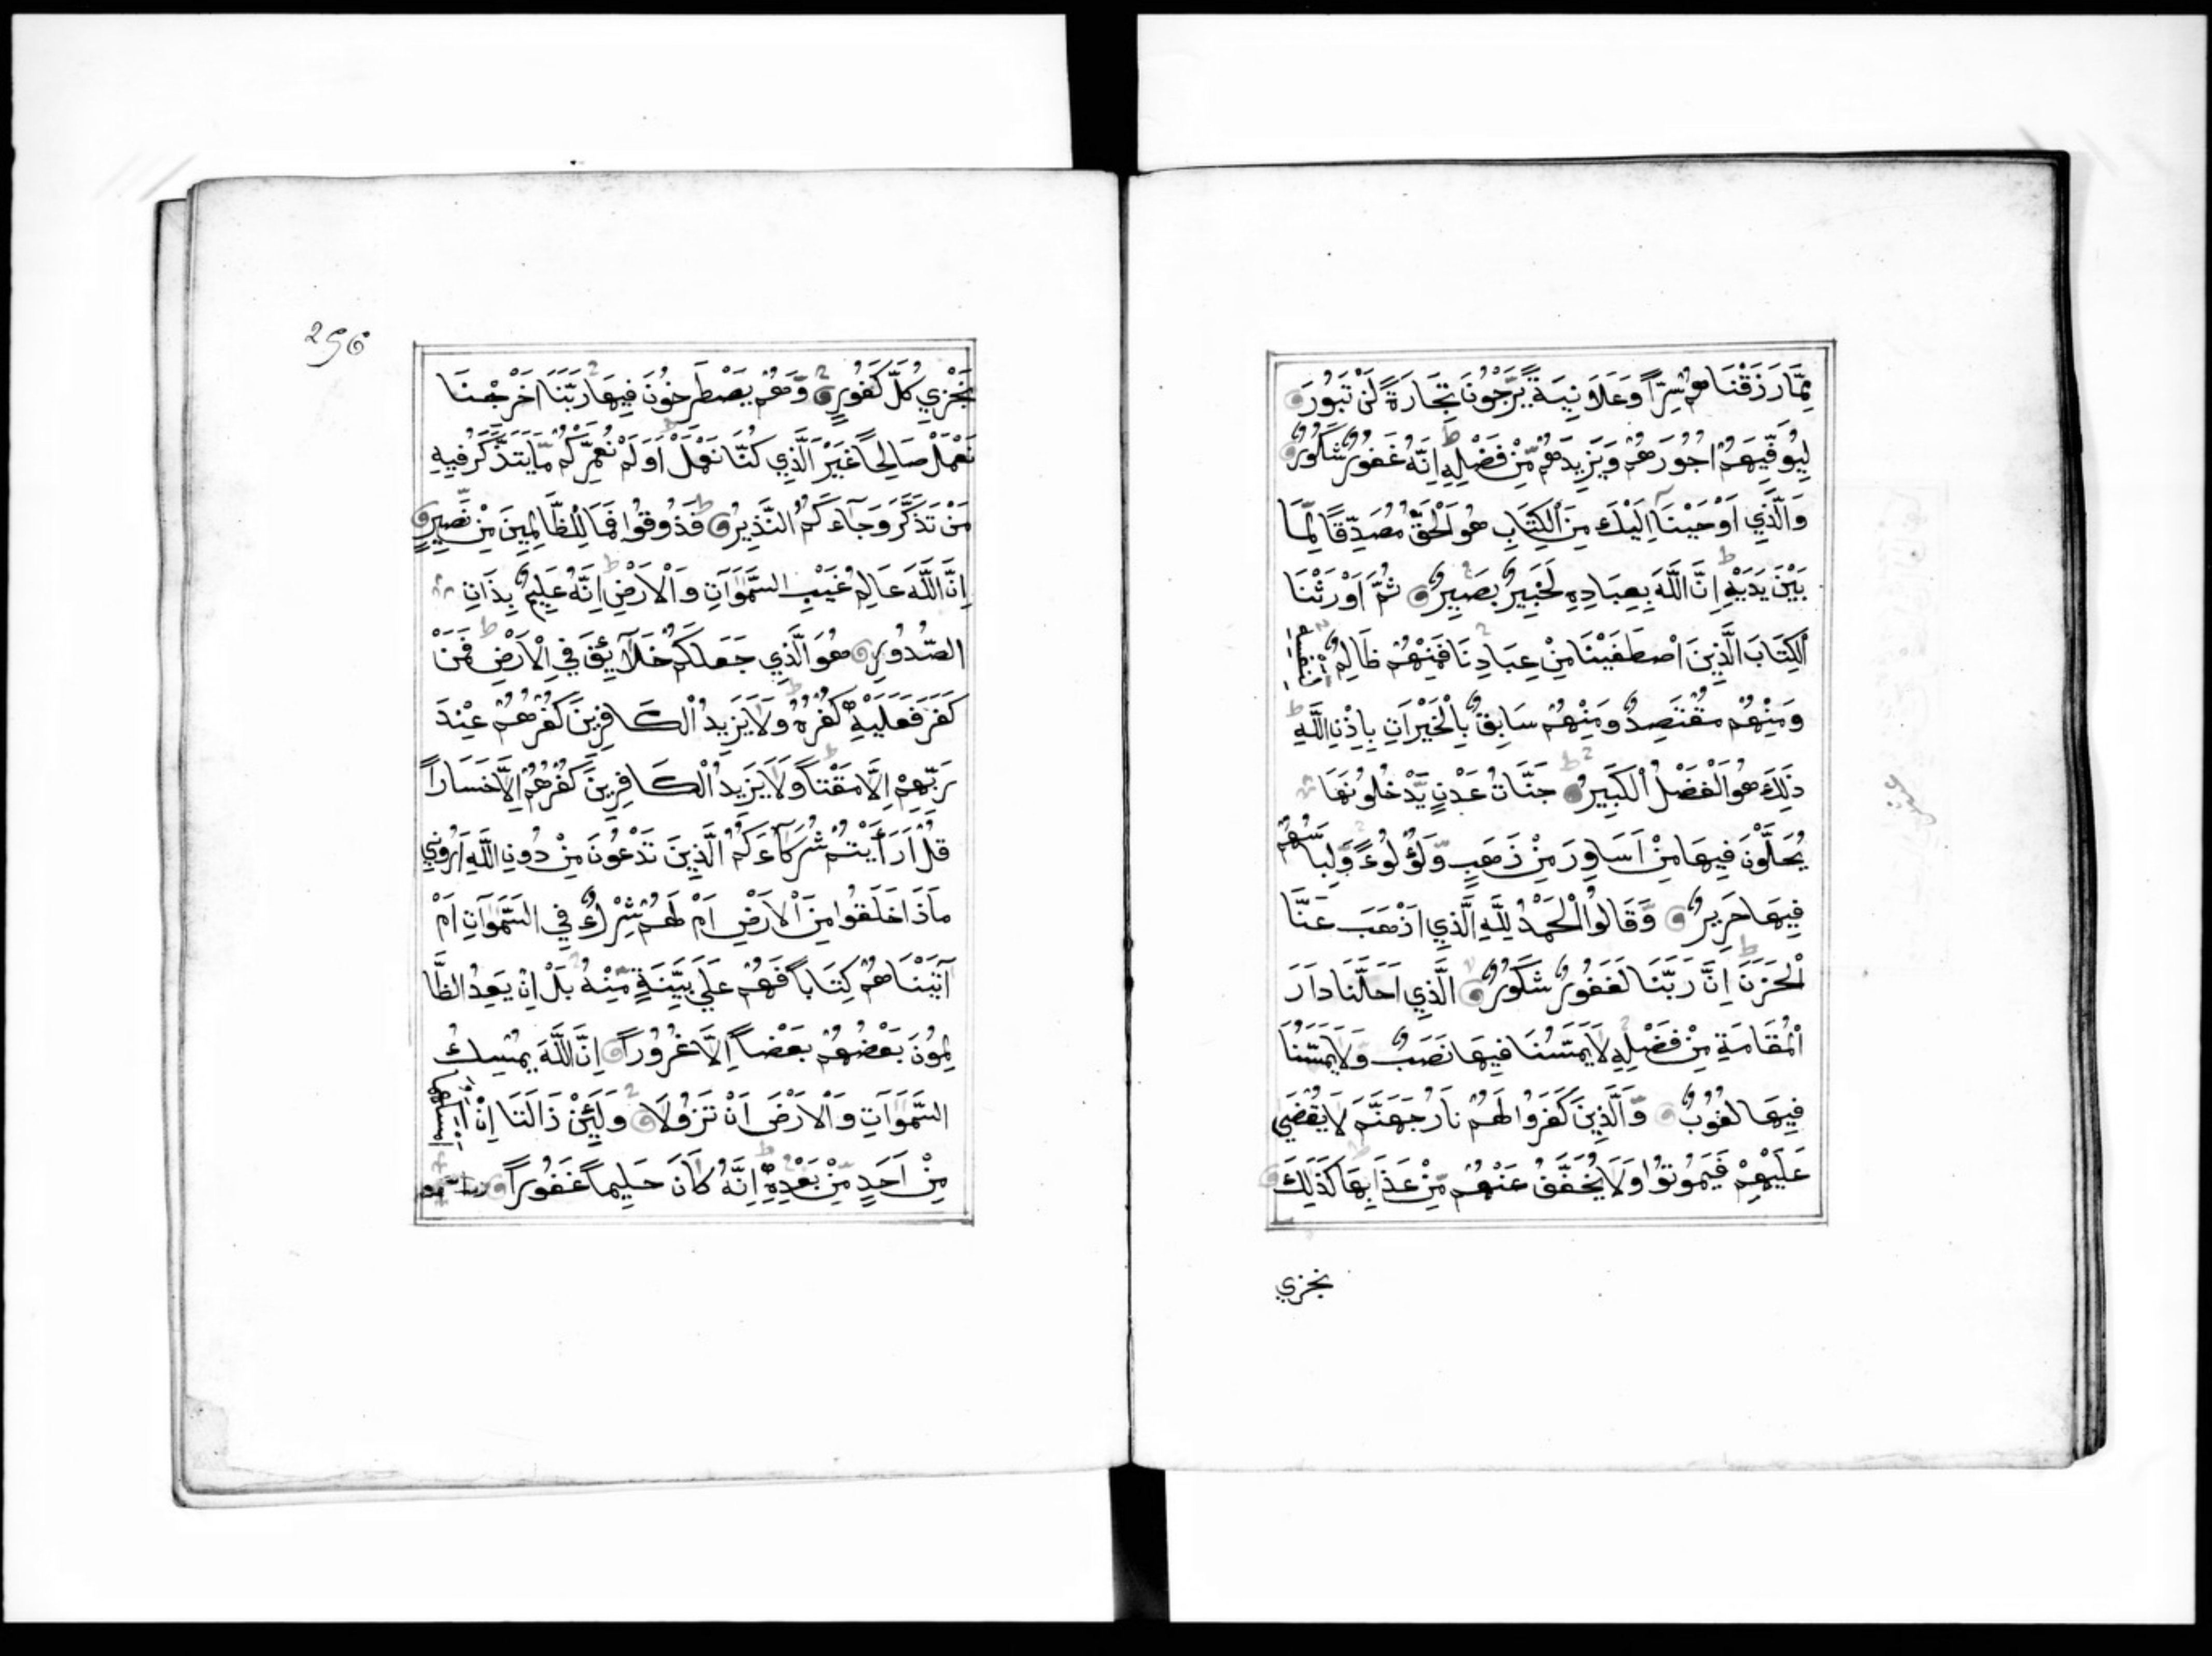 مِمَّا رَزَقْنَاهُمْ سِرّاً وَعَلَانِيَةً يَّرْجُونَ تِجَارَةً لَنْ تَبُورَ
لِيُوَفِّيَهُمْ اُجُورَهُمْ وَيَزِيدَهُمْ مِّنْ فَضْلِهِ اِنَّهُ غَفُورٌ شَكُورٌ
وَالَّذِي اَوْحَيْنَا اِلَيْكَ مِنَ الْكِتَابِ هُوَ الْحَقُّ مُصَدِّقًا لِّمَا
بَيْنَ يَدَيْهِ اِنَّ اللَّهَ بِعِبَادِهِ لَخَبِيرٌ بَصِيرٌ ثُمَّ اَوْرَثْنَا
الْكِتَابَ الَّذِينَ اصْطَفَيْنَا مِنْ عِبَادِنَا فَمِنْهُمْ ظَالِمٌ
وَمِنْهُمْ مُقْتَصِدٌ وَمِنْهُمْ سَابِقٌ بِالْخَيْرَاتِ بِاِذْنِ اللَّهِ
ذَلِكَ هُوَ الْفَضْلُ الْكَبِيرُ جَنَّاتُ عَدْنٍ يَّدْخُلُونَهَا
يُحَلَّوْنَ فِيهَا مِنْ اَسَاوِرَ مِنْ ذَهَبٍ وَّلُؤْلُوءً وَّلِبَاسُهُمْ
فِيهَا حَرِيرٌ وَّقَالُوا الْحَمْدُ لِلَّهِ الَّذِي اَذْهَبَ عَنَّا
الْحَزَنَ اِنَّ رَبَّنَا لَغَفُورٌ شَكُورٌ الَّذِي اَحَلَّنَا دَارَ
الْمُقَامَةِ مِنْ فَضْلِهِ لَا يَمَسُّنَا فِيهَا نَصَبٌ وَلَا يَمَسُّنَا
فِيهَا لُغُوبٌ وَّالَّذِينَ كَفَرُوا لَهُمْ نَارُ جَهَنَّمَ لَا يُقْضَى
عَلَيْهِمْ فَيَمُوتُوا وَلَا يُخَفَّفُ عَنْهُمْ مِّنْ عَذَابِهَا كَذَلِكَ
نجزي
296
نَجْزِي كُلَّ كَفُورٍ وَّهُمْ يَصْطَرِخُونَ فِيهَا رَبَّنَا اَخْرِجْنَا
نَعْمَلْ صَالِحاً غَيْرَ الَّذِي كُنَّا نَعْمَلُ اَوَلَمْ نُعَمِّرْكُمْ مَّا يَتَذَكَّرُ فِيهِ
مَنْ تَذَكَّرَ وَجَاءَكُمُ النَّذِيرُ فَذُوقُوا فَمَا لِلظَّالِمِينَ مِنْ نَّصِيرٍ
اِنَّ اللَّهَ عَالِمُ غَيْبِ السَّمَوَاتِ وَالْاَرْضِ اِنَّهُ عَلِيمٌ بِذَاتِ
الصُّدُورِ هُوَ الَّذِي جَعَلَكُمْ خَلَآئِفَ فِي الْاَرْضِ فَمَنْ
كَفَرَ فَعَلَيْهِ كُفْرُهُ وَلَا يَزِيدُ الْكَافِرِينَ كُفْرُهُمْ عِنْدَ
رَبِّهِمْ اِلَّا مَقْتاً وَلَا يَزِيدُ الْكَافِرِينَ كُفْرُهُمْ اِلَّا خَسَاراً
قُلْ اَرَأَيْتُمْ شُرَكَآءَكُمُ الَّذِينَ تَدْعُونَ مِنْ دُونِ اللَّهِ اَرُونِي
مَاذَا خَلَقُوا مِنَ الْاَرْضِ اَمْ لَهُمْ شِرْكٌ فِي السَّمَوَاتِ اَمْ
آتَيْنَاهُمْ كِتَاباً فَهُمْ عَلَى بَيِّنَةٍ مِّنْهُ بَلْ اِنْ يَعِدُ الظَّا
لِمُونَ بَعْضُهُمْ بَعْضاً اِلَّا غُرُوراً اِنَّ اللَّهَ يُمْسِكُ
السَّمَوَاتِ وَالْاَرْضَ اَنْ تَزُولَا وَلَئِنْ زَالَتَا اِنْ اَمْسَكَهُمَا
مِنْ اَحَدٍ مِّنْ بَعْدِهِ اِنَّهُ كَانَ حَلِيماً غَفُوراً